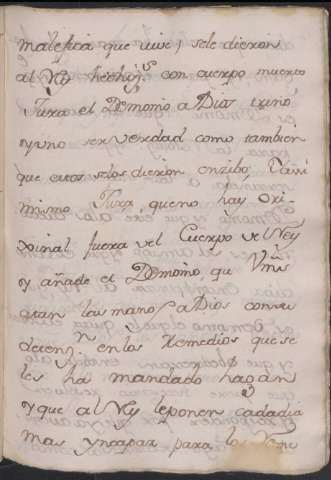 malefica que uiue, sele dieron
al Rey hechizos con cuerpo muerto
Jura el Demonio a Dios trino
y uno ser verdad como tambien
que estos selos dieron en
mismo Jura que no hay ori-
xinal fuera del Cuerpo del Rey
y añade el Demonio que Vms
atan las manos a Dios con su
detenn. en los Remedios que se
les ha mandado hagan
y que al Rey le ponen cada dia
mas yncapaz para los